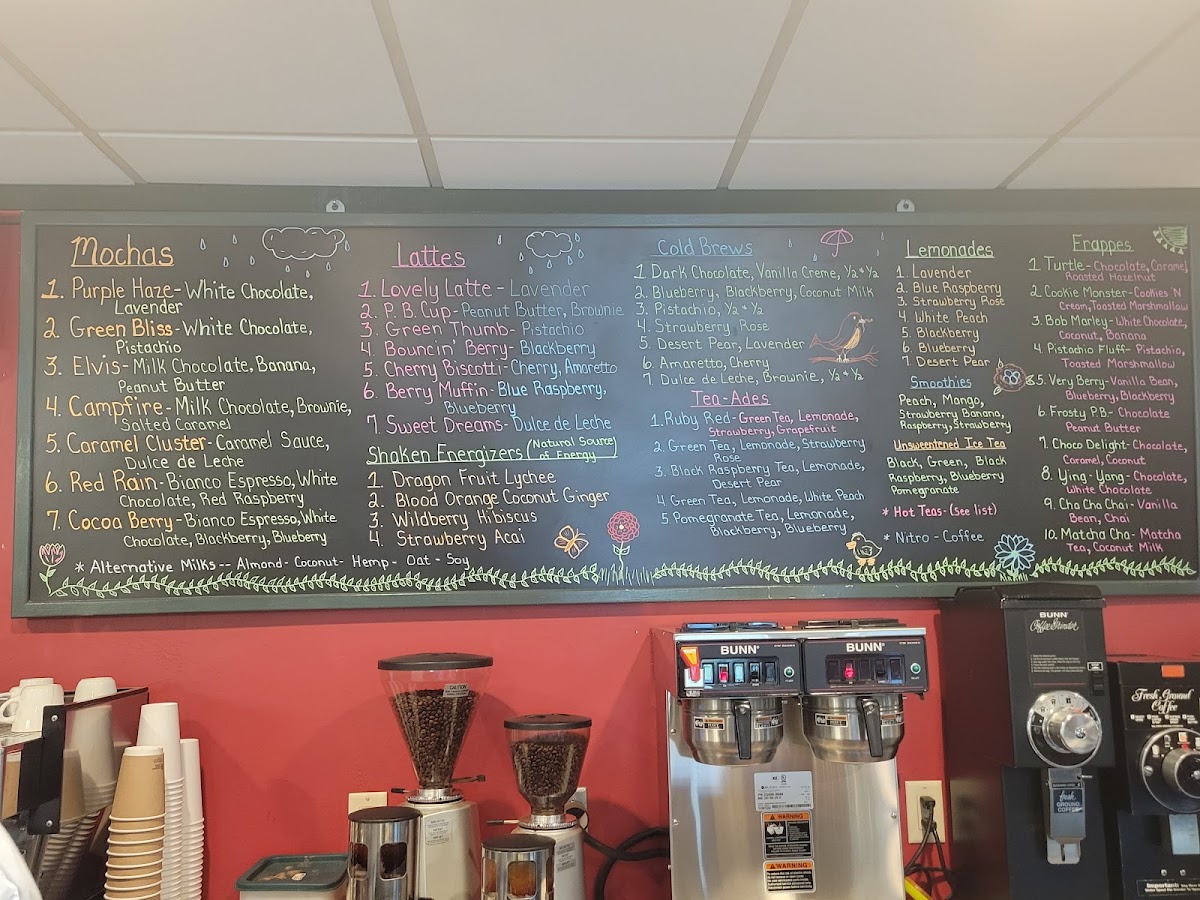 Mochas
1. Purple Haze - White Chocolate,
Lavender
2. Green Bliss - White Chocolate,
Pistachio
3. Elvis - Milk Chocolate, Banana,
Peanut Butter
4. Campfire - Milk Chocolate, Brownie,
Salted Caramel
5. Caramel Cluster - Caramel Sauce,
Dulce de Leche
6. Red Rain - Bianco Espresso, White
Chocolate, Red Raspberry
7. Cocoa Berry - Bianco Espresso, White
Chocolate, Blackberry, Blueberry
* Alternative Milks -- Almond - Coconut - Hemp - Oat - Soy
Lattes
1. Lovely Latte - Lavender
2. P.B. Cup - Peanut Butter, Brownie
3. Green Thumb - Pistachio
4. Bouncin' Berry - Blackberry
5. Cherry Biscotti - Cherry, Amaretto
6. Berry Muffin - Blue Raspberry,
Blueberry
7. Sweet Dreams - Dulce de Leche
Shaken Energizers (Natural Source
of Energy)
1. Dragon Fruit Lychee
2. Blood Orange Coconut Ginger
3. Wildberry Hibiscus
4. Strawberry Acai
Cold Brews
1. Dark Chocolate, Vanilla Creme, 1/2 & 1/2
2. Blueberry, Blackberry, Coconut Milk
3. Pistachio, 1/2 & 1/2
4. Strawberry Rose
5. Desert Pear, Lavender
6. Amaretto, Cherry
7. Dulce de Leche, Brownie, 1/2 & 1/2
Tea-Ades
1. Ruby Red - Green Tea, Lemonade,
Strawberry, Grapefruit
2. Green Tea, Lemonade, Strawberry
Rose
3. Black Raspberry Tea, Lemonade,
Desert Pear
4. Green Tea, Lemonade, White Peach
5. Pomegranate Tea, Lemonade,
Blackberry, Blueberry
Lemonades
1. Lavender
2. Blue Raspberry
3. Strawberry Rose
4. White Peach
5. Blackberry
6. Blueberry
7. Desert Pear
Smoothies
Peach, Mango,
Strawberry Banana,
Raspberry, Strawberry
Unsweetened Ice Tea
Black, Green, Black
Raspberry, Blueberry
Pomegranate
* Hot Teas - (See list)
* Nitro - Coffee
Frappes
1. Turtle - Chocolate, Caramel,
Roasted Hazelnut
2. Cookie Monster - Cookies 'N
Cream, Toasted Marshmallow
3. Bob Marley - White Chocolate,
Coconut, Banana
4. Pistachio Fluff - Pistachio,
Toasted Marshmallow
5. Very Berry - Vanilla Bean,
Blueberry, Blackberry
6. Frosty P.B. - Chocolate
Peanut Butter
7. Choco Delight - Chocolate,
Caramel, Coconut
8. Ying-Yang - Chocolate,
White Chocolate
9. Cha Cha Chai - Vanilla
Bean, Chai
10. Matcha Cha - Matcha
Tea, Coconut Milk
BUNN
BUNN
WARNING
WARNING
CAUTION
BUNN
Coffee Grinder
fresh
GROUND
COFFEE
Fresh Ground
Coffee
Important: